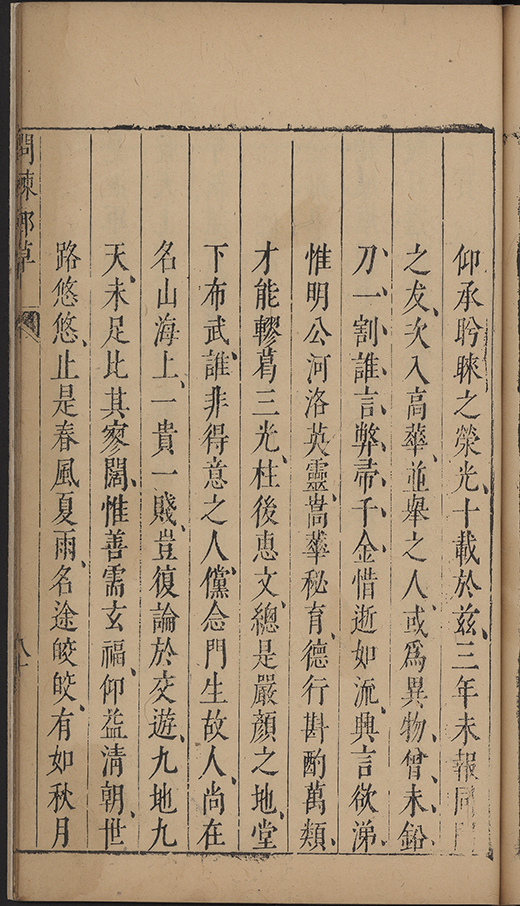 仰承眕睞之榮光、十載於茲、三年未報、同
之友、次入高華、並舉之人、或爲異物、曾未鉛
刀一割、誰言弊帚千金、惜逝如流、興言欲涕、
惟明公河洛英靈、嵩華秘育、德行斟酌萬類、
才能轇葛三光、柱後惠文、總是嚴顏之地、堂
下布武、誰非得意之人、儻念門生故人、尚在
名山海上、一貴一賤、豈復論於交遊、九地九
天、未足比其寥闊、惟善需玄福、仰益清朝、世
路悠悠、止是春風夏雨、名途皎皎、有如秋月
問棘郵草